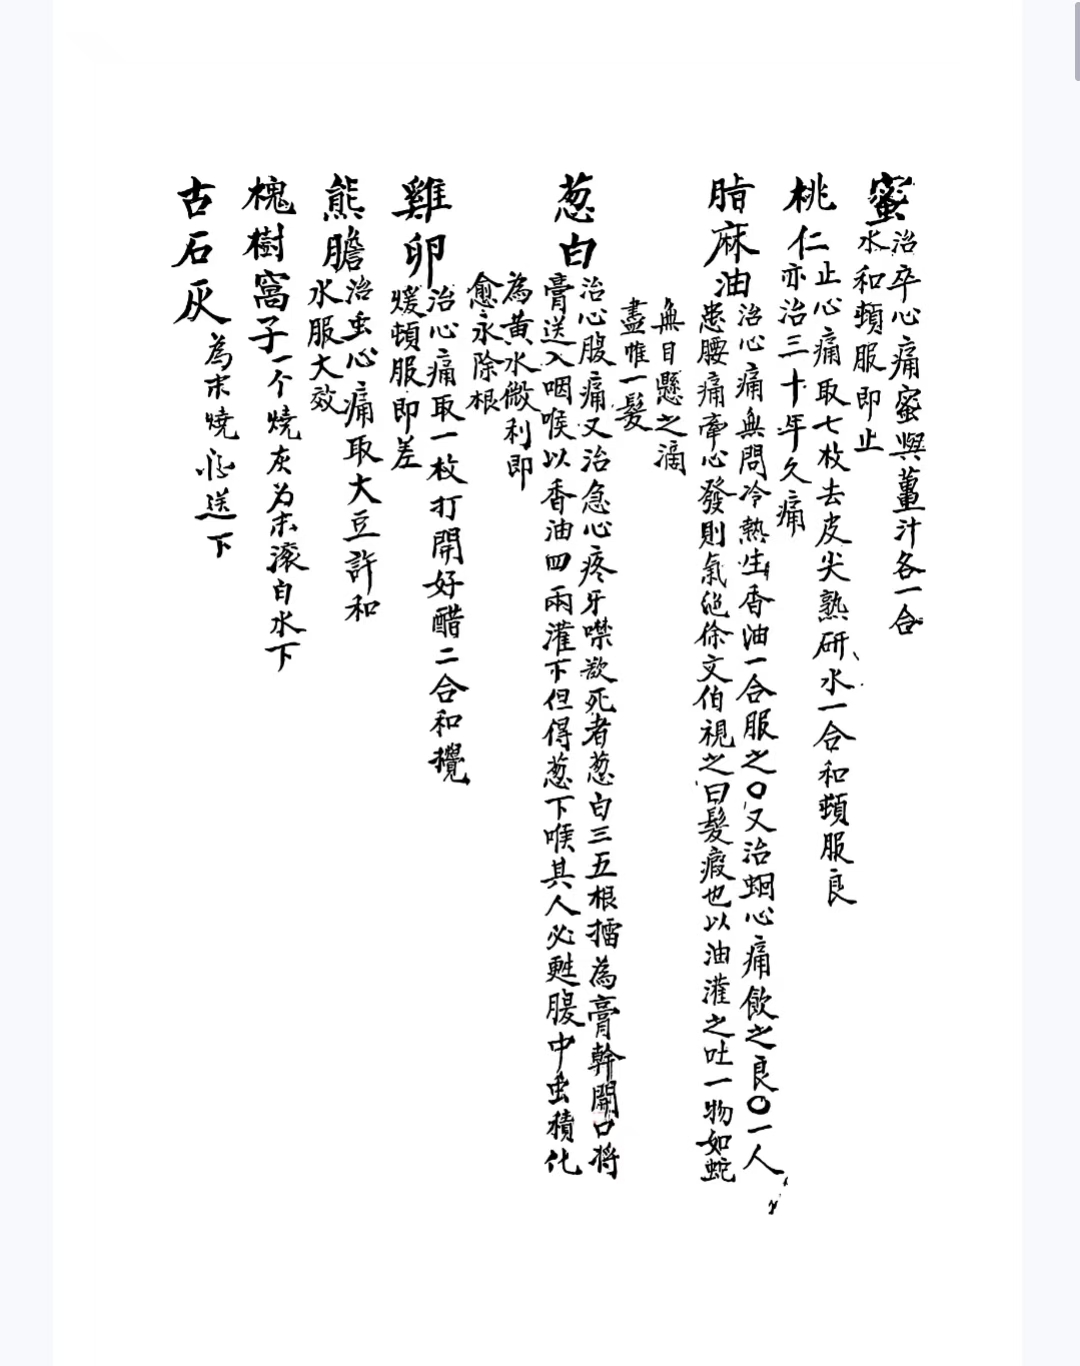 蜜
治卒心痛蜜與薑汁各一合
水和頓服即止
桃仁
止心痛取七枚去皮尖熟研水一合和頓服良
亦治三十年久痛
脂麻油
治心痛無問冷熱生香油一合服之〇又治蛔心痛飲之良〇一人
患腰痛牽心發則氣絕徐文伯視之曰髮瘕也以油灌之吐一物如蛇
無目懸之滴
盡惟一髮
葱白
治心腹痛又治急心疼牙噤欲死者葱白三五根擂為膏斡開口將
膏送入咽喉以香油四兩灌下但得葱下喉其人必甦腹中虫積化
為黄水微利即
愈永除根
雞卵
治心痛取一枚打開好醋二合和攪
煖頓服即差
熊膽
治虫心痛取大豆許和
水服大效
槐樹窩子
一个燒灰为末滚白水下
古石灰
為末燒 送下